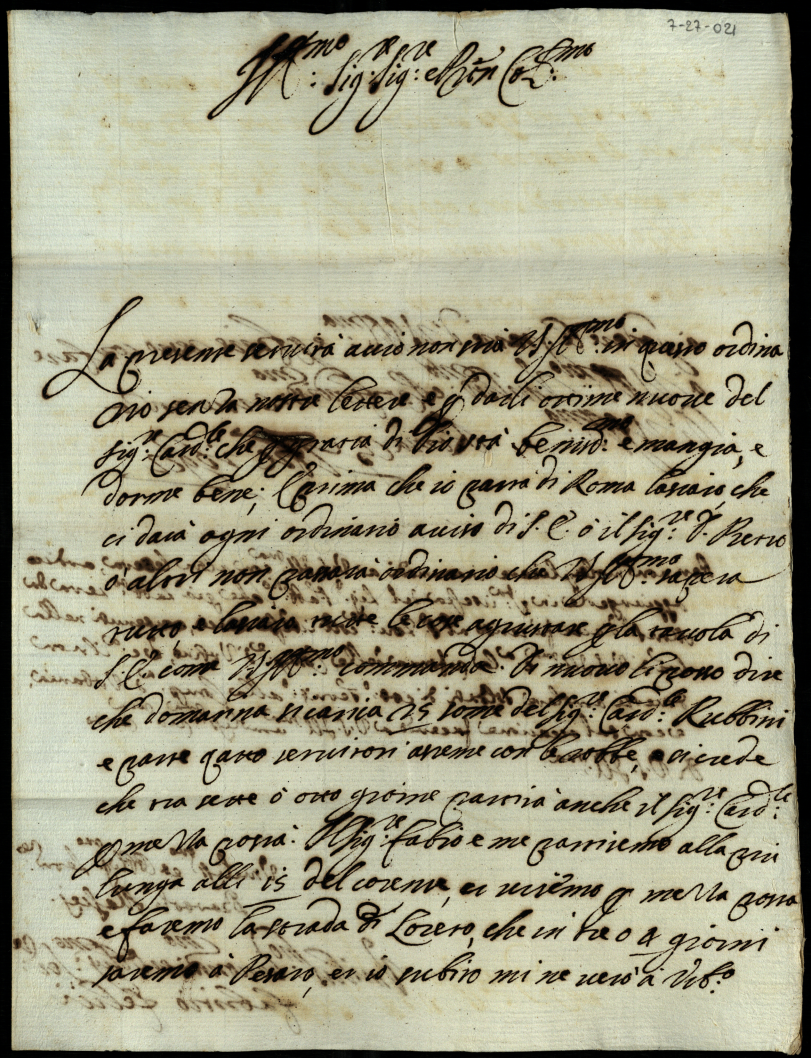 7-27-021
Ill.mo Sig.re Sig.re e Pron Col.mo
La presente servirà acciò non stia V.S. Ill.mo in questo ordina
rio senza nostre lettere e p darli ottime nuove del
Sig.re Card.le che p gratia di Dio stà beniss.mo e mangia, e
dorme bene; Prima che io parta di Roma lasciarò che
ci dara ogni ordinario aviso di S. E. ò il Sig.re D. Pietro
o altri non passarà ordinario che V.S. Ill.mo sapera
tutto e lasciarò tutte le cose agiustate p la tavola di
S. E. come V.S. Ill.mo commanda. Di nuovo li posso dire
che domanna si carica 25 some del Sig.re Card.le Rubbini
e parte quatro servitori assieme con le robbe, e si crede
che tra sette ò otto giorne partirà anche il Sig.re Card.le
p mezza posta. Il Sig.re Fabio e me partiremo alla più
lunga alli 15 del corente, et verremo p mezza posta
e faremo la strada di Loreto, che in tre o 4 giorni
saremo à Pesaro, et io subito mi ne verò à Urb.o